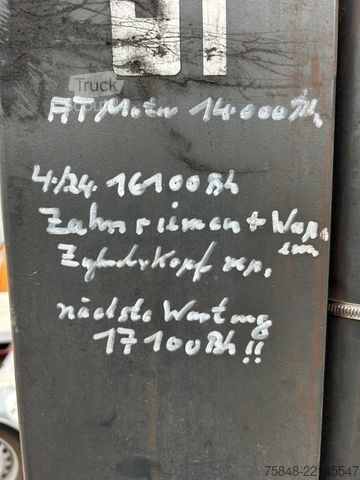 AT Motor 14.000 Bh
4./24. 16100 Bh
Zahnriemen + Wapu
Zylinderkopf rep.
nächste Wartung
17100 Bh !!
Truck
75848-22145547